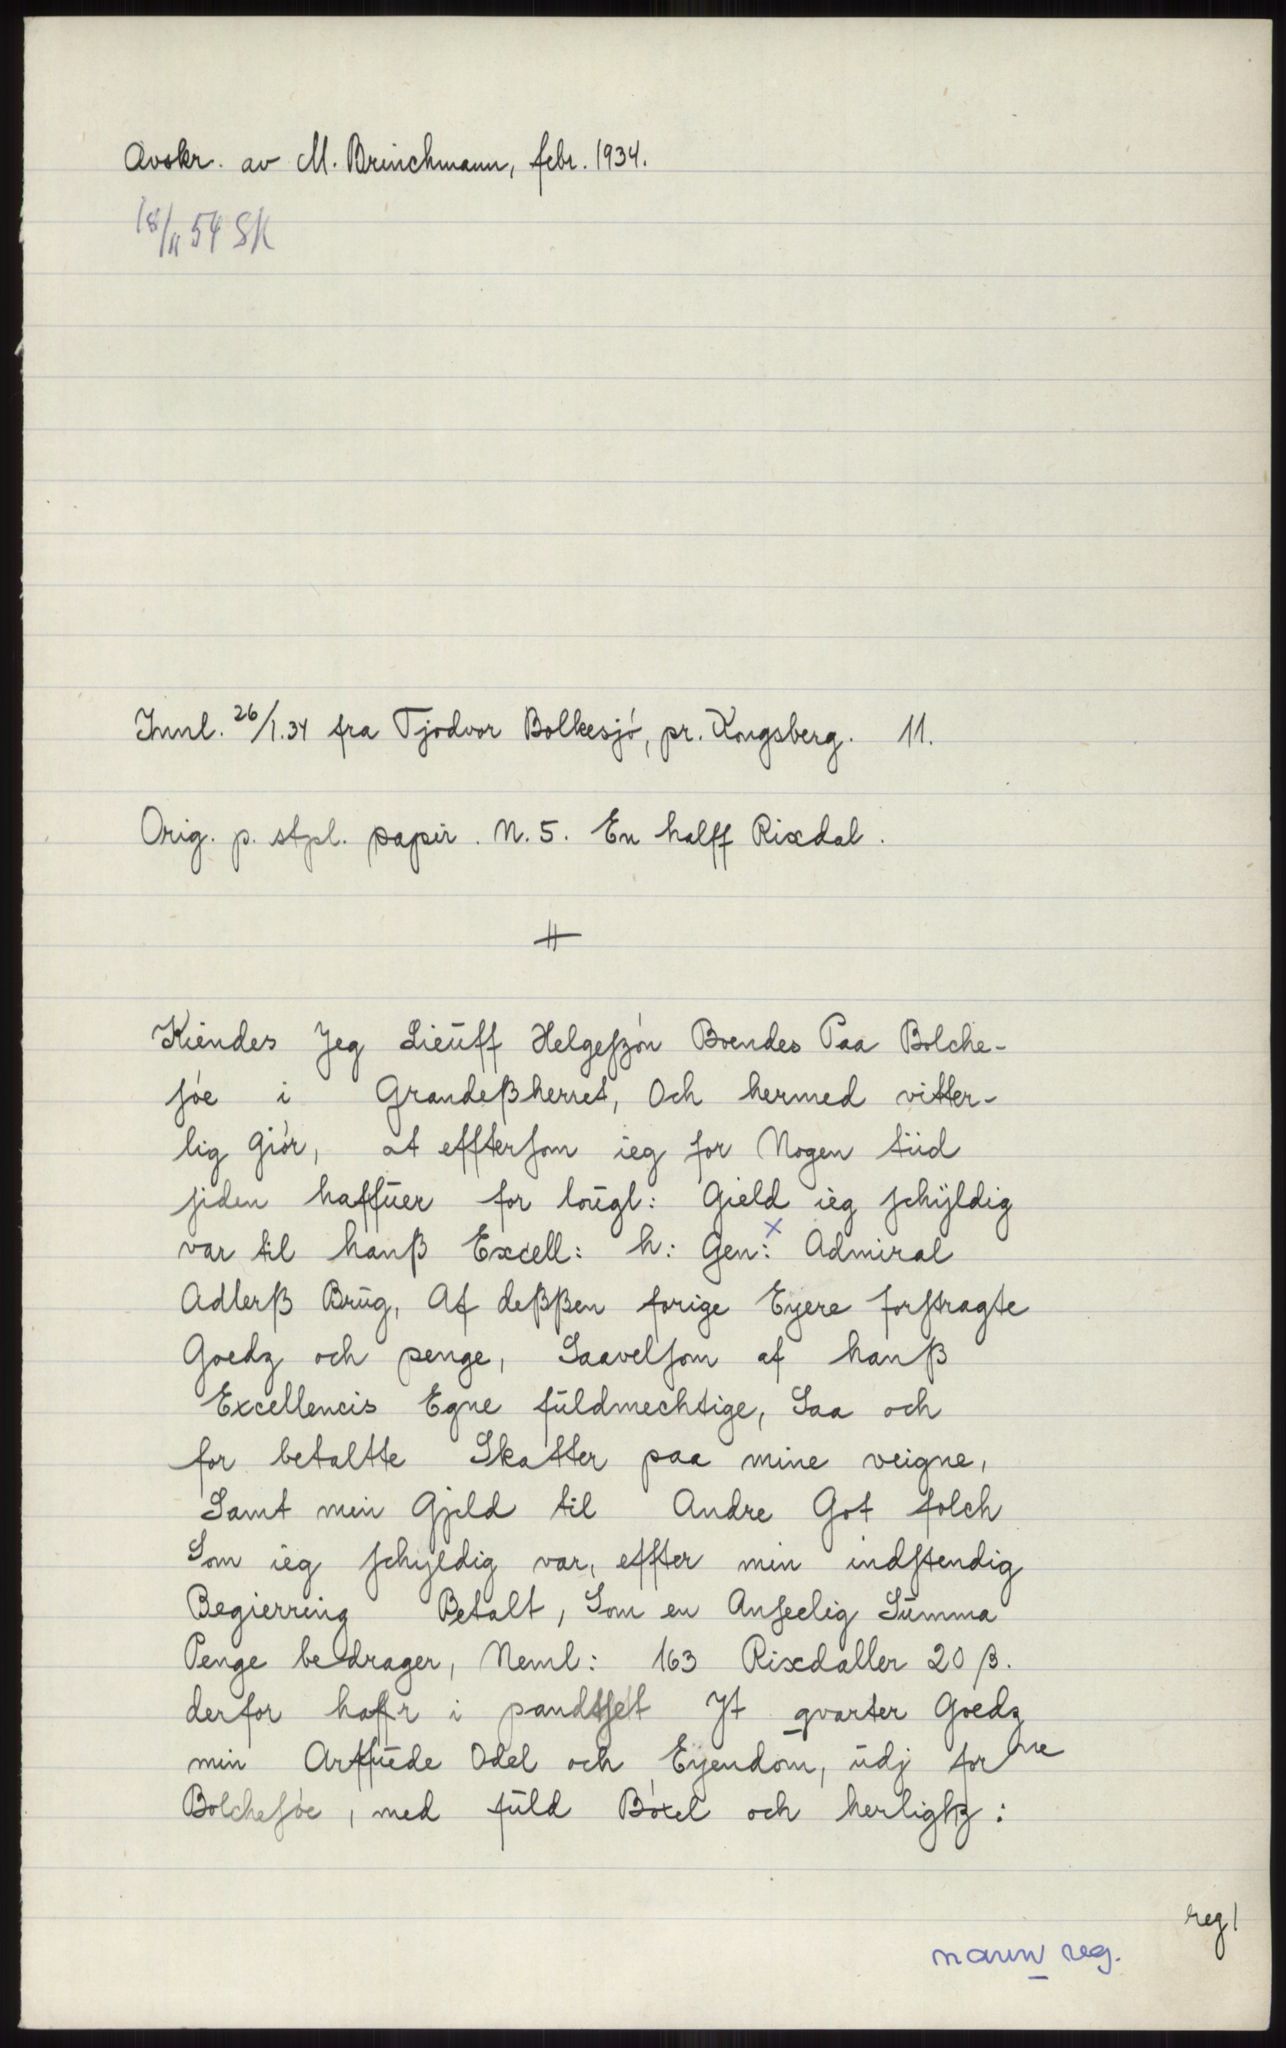 Avskr. av M. Brinchmann, febr. 1934.
18/11 54 SK
Innl. 26/1.34 fra Tjodvor Bolkesjó, pr. Kongsberg. 11.
Orig. p. stpl. papir. N. 5. En halff Rixdal.
Kiendes Jeg Lieüff Helgeszón Boendes Paa Bolche-
sóe i Grandeßherret, Och hermed vitter-
lig Giór, at efftersom ieg for Nogen tiid
siden haffüer for loügl: Gield ieg schÿldig
var til hanß Excell: h: Gen: x Admiral
Adlerß Brüg, Af deßßen forige Eÿere forstragte
Goedz och penge, Saavelsom af hanß
Excellencis Egne füldmechtige, Saa och
for betaltte Skatter paa mine veigne,
Samt min Gjeld til Andre Got folch
Som ieg schyldig var, effter min indstendig
Begierring Betalt, Som en Anseelig Summa
Penge bedrager, Neml: 163 Rixdaller 20 β.
derfor hafr i pandtset Jt qvarter Goedz
min Arffüede Odel och Eÿendom, üdj for ne
Bolchesóe, med füld Bóxel och herligkz:
reg!
navn reg.